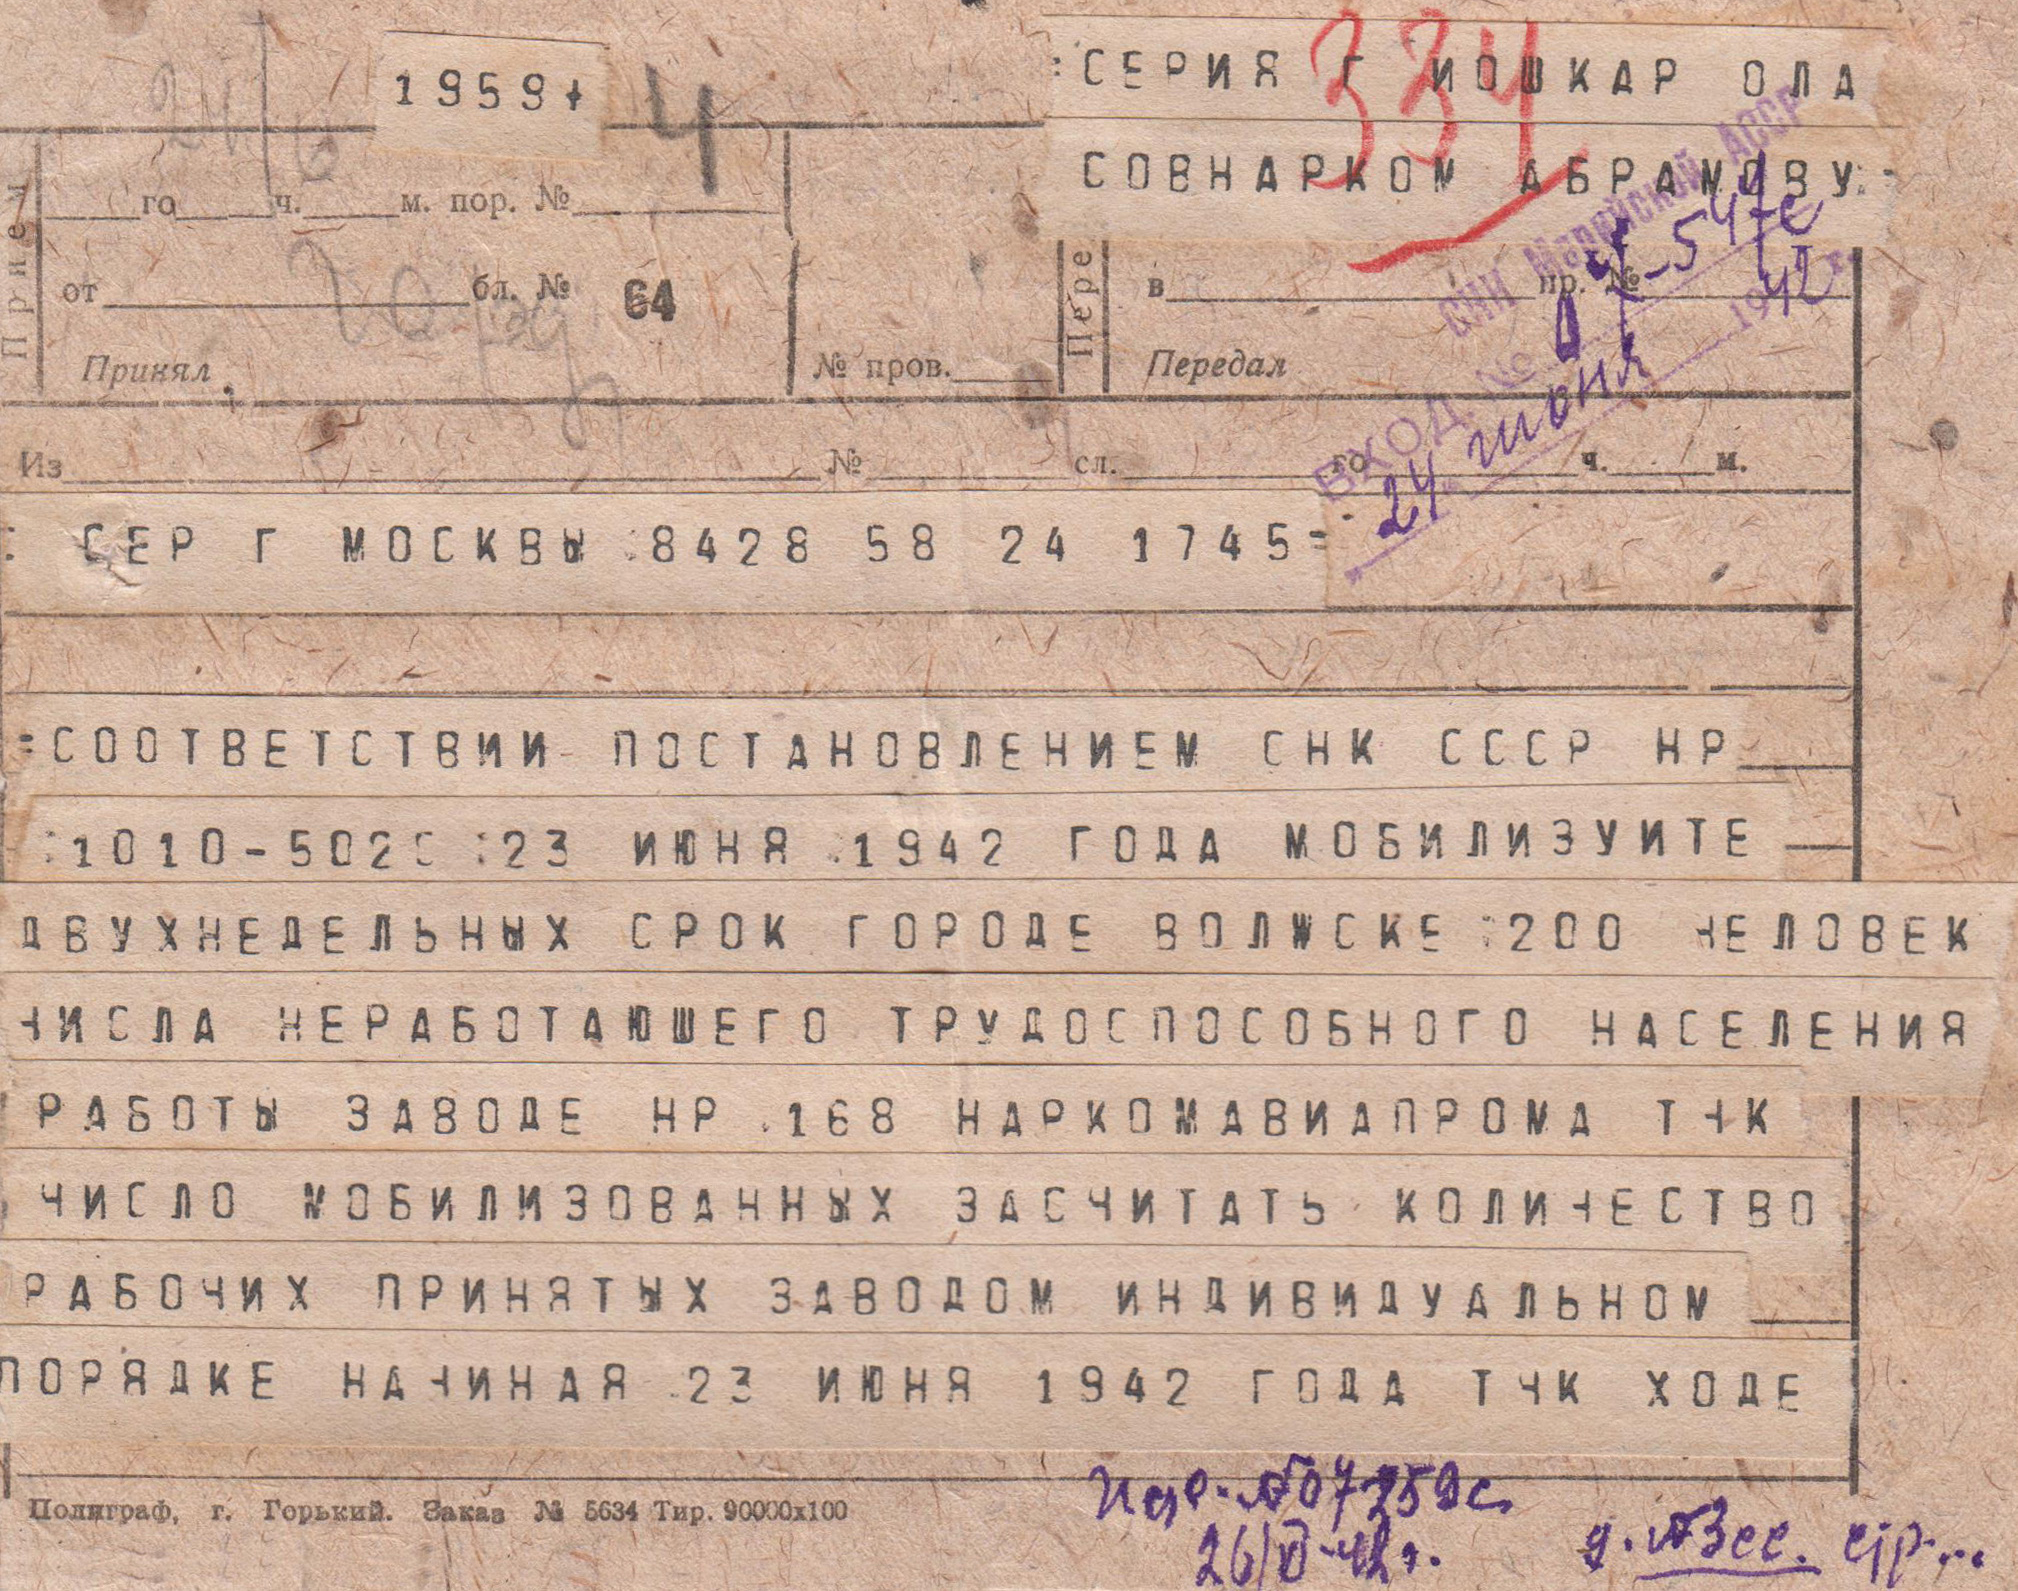 1959+ 4
=СЕРИЯ Г ИОШКАР ОЛА
334
СОВНАРКОМ АБРАМОВУ=
СНК Марийской АССР
Прием
го ч. м. пор. №
от бл. № 64
Принял
№ пров.
Пере
в пр. №
Передал
ВХОД. №
24 июня 1942 г.
Из № сл. го ч. м.
: СЕР Г МОСКВЫ 8428 58 24 1745=
=СООТВЕТСТВИИ ПОСТАНОВЛЕНИЕМ СНК СССР НР
1010-502С 23 ИЮНЯ 1942 ГОДА МОБИЛИЗУИТЕ
ДВУХНЕДЕЛЬНЫХ СРОК ГОРОДЕ ВОЛЖСКЕ 200 ЧЕЛОВЕК
ЧИСЛА НЕРАБОТАЮШЕГО ТРУДОСПОСОБНОГО НАСЕЛЕНИЯ
РАБОТЫ ЗАВОДЕ НР 168 НАРКОМАВИАПРОМА ТЧК
ЧИСЛО МОБИЛИЗОВАННЫХ ЗАСЧИТАТЬ КОЛИЧЕСТВО
РАБОЧИХ ПРИНЯТЫХ ЗАВОДОМ ИНДИВИДУАЛЬНОМ
ПОРЯДКЕ НАЧИНАЯ 23 ИЮНЯ 1942 ГОДА ТЧК ХОДЕ
Полиграф, г. Горький. Заказ № 5634 Тир. 90000х100
26/VI-42 г.
д. №3сс. стр...